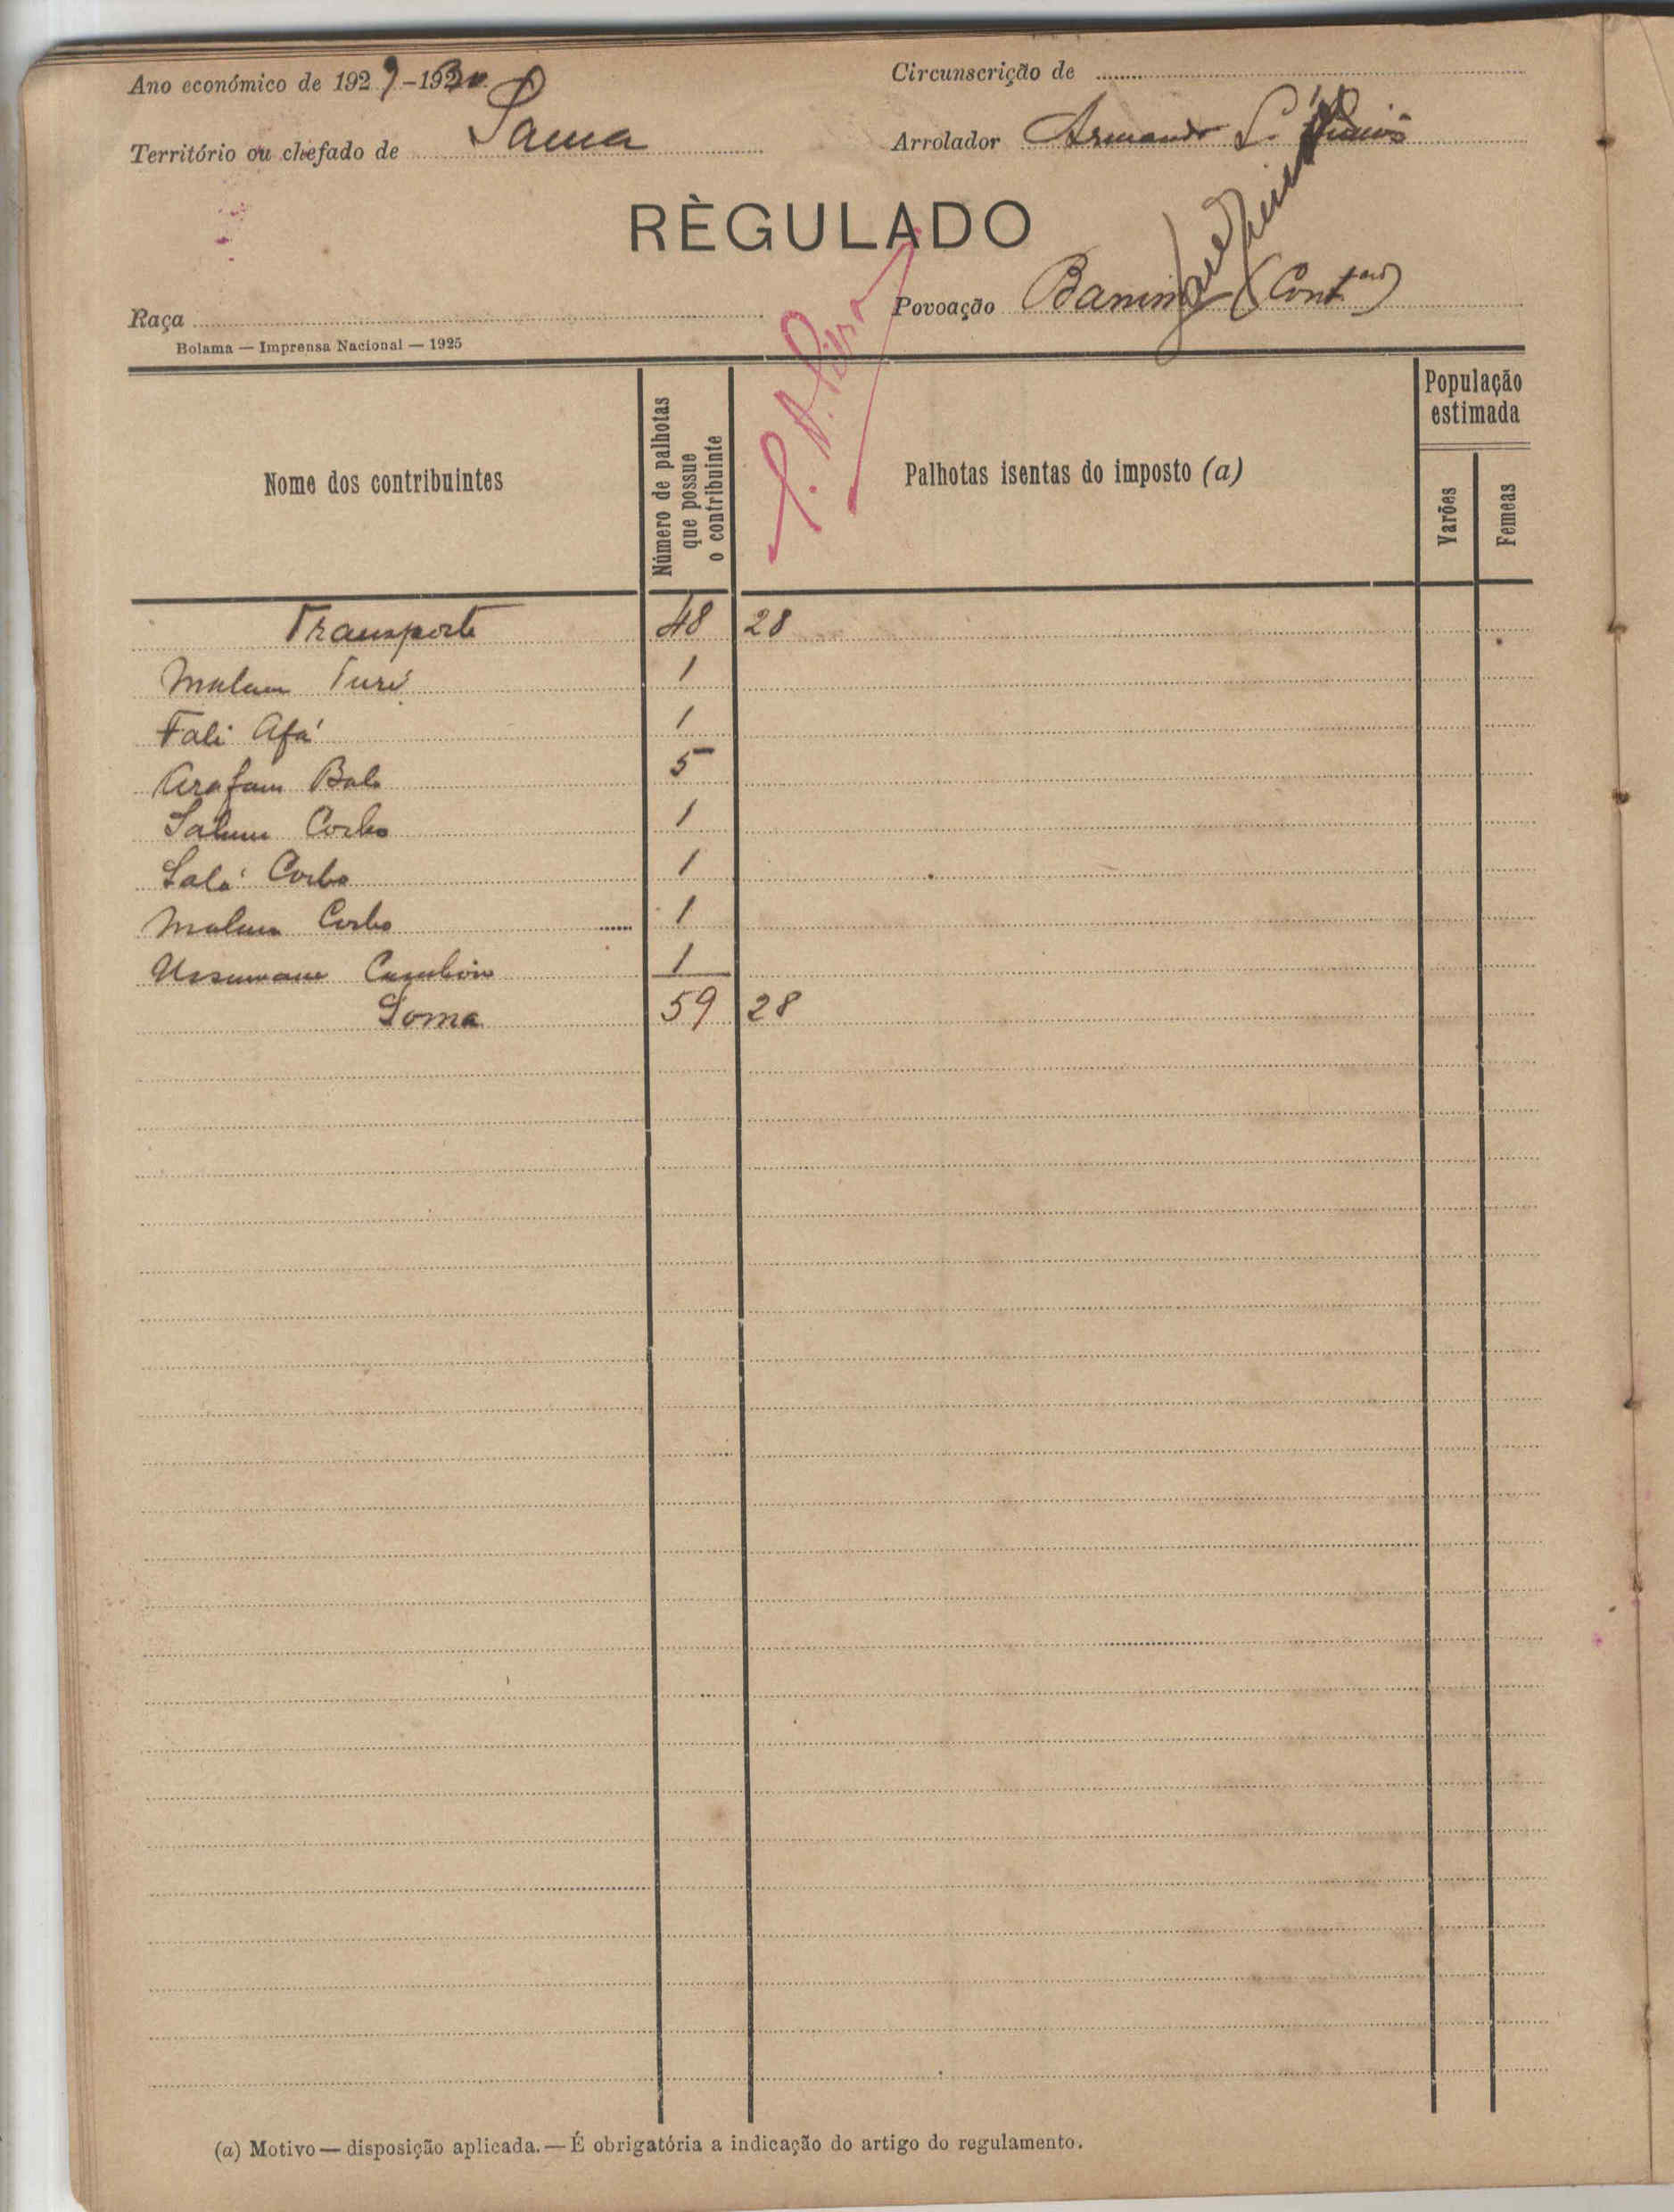 Ano económico de 1929-1930
Circunscrição de
Território ou chefado de Sama
Arrolador Armando S.
RÈGULADO
Raça
Povoação (Cont.ão)
Bolama — Imprensa Nacional — 1925
Nome dos contribuintes
Número de palhotas que possue o contribuinte
Palhotas isentas do imposto (a)
População estimada
Varões
Femeas
Transporte 48 28
Malam Turé 1
Fali Afá 1
Arafam Balo 5
Salum Corbo 1
Salá Corbo 1
Malam Corbo 1
Ussumane 1
Soma 59 28
(a) Motivo — disposição aplicada. — É obrigatória a indicação do artigo do regulamento.